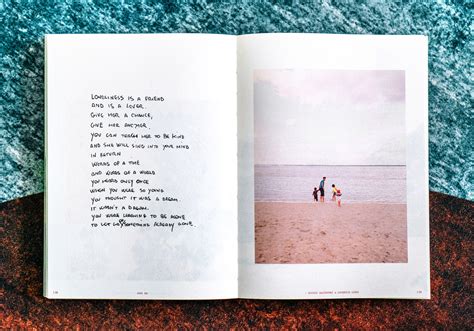 LONELINESS IS A FRIEND
AND IS A LOVER.
GIVE HER A CHANCE,
GIVE HER ANOTHER.
YOU CAN TEACH HER TO BE KIND
AND SHE WILL SLIDE INTO YOUR MIND
IN RETURN
WORDS OF A TIME
AND WORDS OF A WORLD
YOU HEARD ONLY ONCE
WHEN YOU WERE SO YOUNG
YOU THOUGHT IT WAS A DREAM.
IT WASN'T A DREAM.
YOU WERE LEARNING TO BE ALONE
TO LET GO SOMETHING ALREADY GONE.